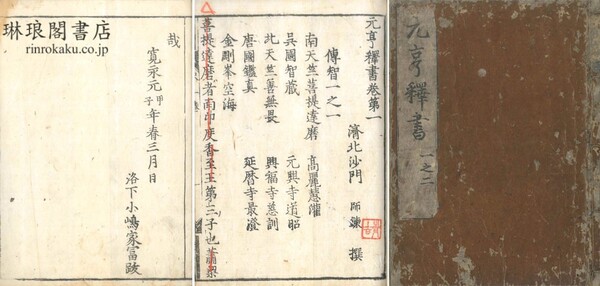 琳琅閣書店
rinrokaku.co.jp
哉
寛永元甲子年春三月日
洛下小嶋家富跋
元亨釋書卷第一
濟北沙門 師錬 撰
傳智一之一
南天竺菩提達磨 高麗慧灌
吳國智藏 元興寺道昭
北天竺善無畏 興福寺慈訓
唐國鑑真 延曆寺最澄
金剛峯空海
菩提達磨者南印度香至王第三子也
元亨釋書 一之二